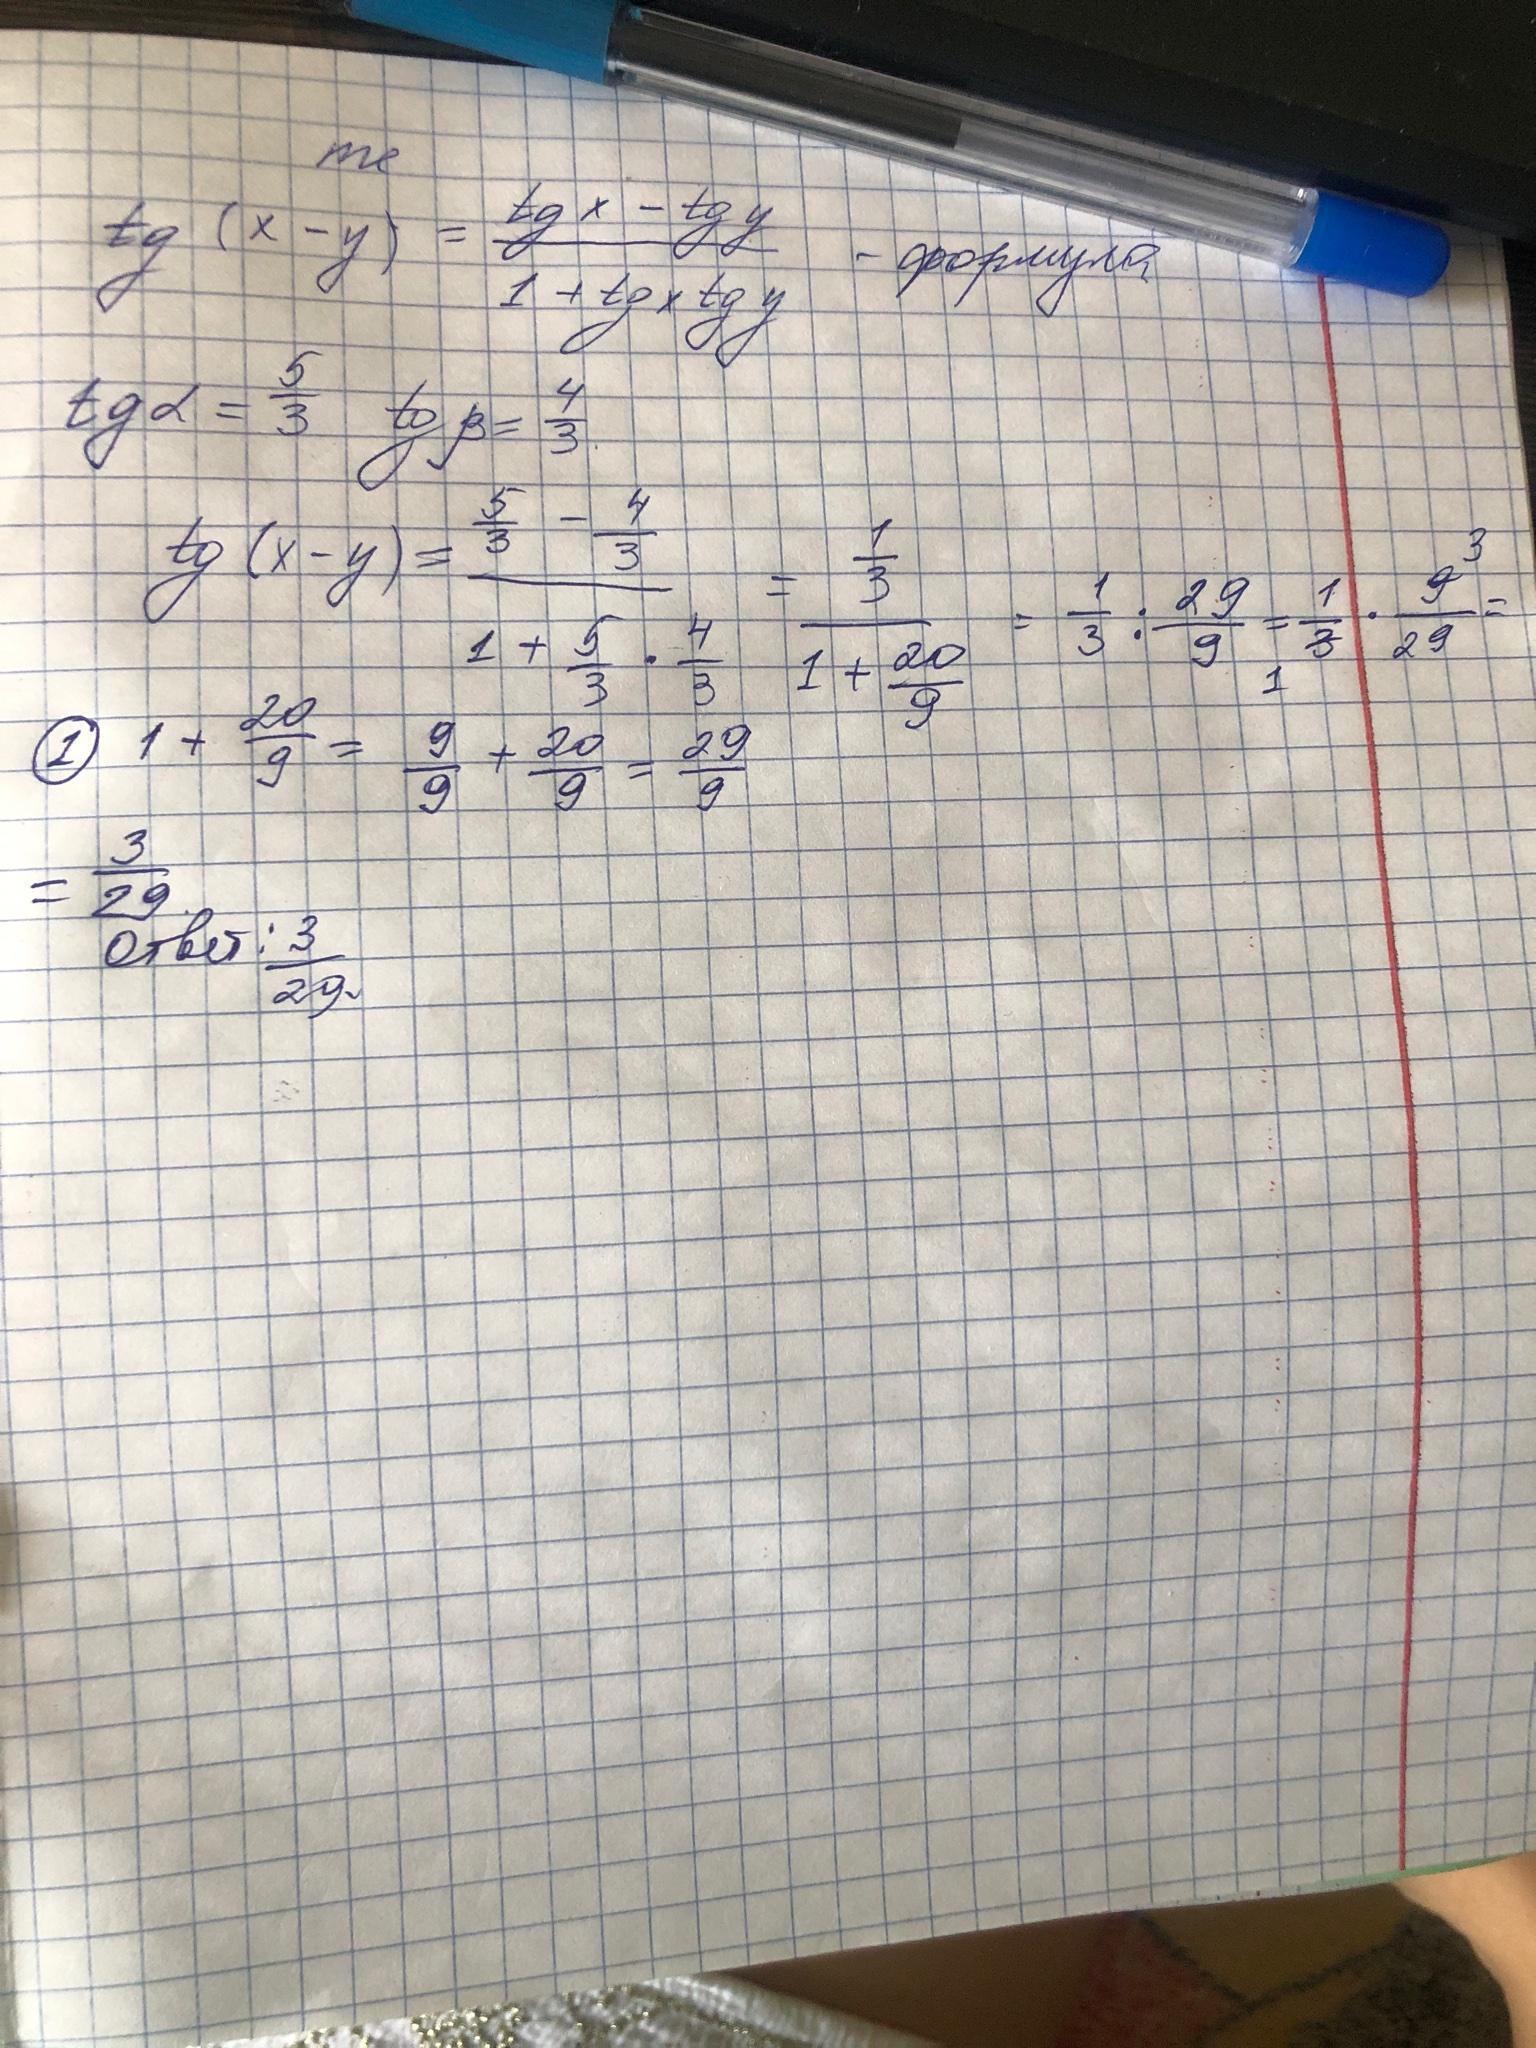 те
tg (x - y) = (tg x - tg y)/(1 + tg x tg y) - формула
tg α = 5/3 tg β = 4/3.
tg (x - y) = (5/3 - 4/3)/(1 + 5/3 · 4/3) = (1/3)/(1 + 20/9) = 1/3 : 29/9 = 1/3 1 · 9 3/29 =
① 1 + 20/9 = 9/9 + 20/9 = 29/9
= 3/29.
Ответ: 3/29.